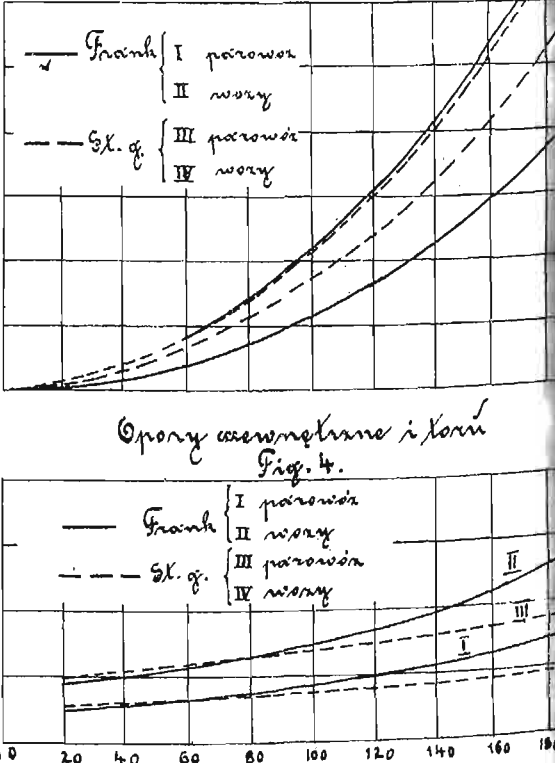 Frank I parowóz
II wozy
St. g. III parowóz
IV wozy
Opory zewnętrzne i toru
Fig. 4.
Frank I parowóz
II wozy
St. g. III parowóz
IV wozy
II
III
I
0 20 40 60 80 100 120 140 160 180